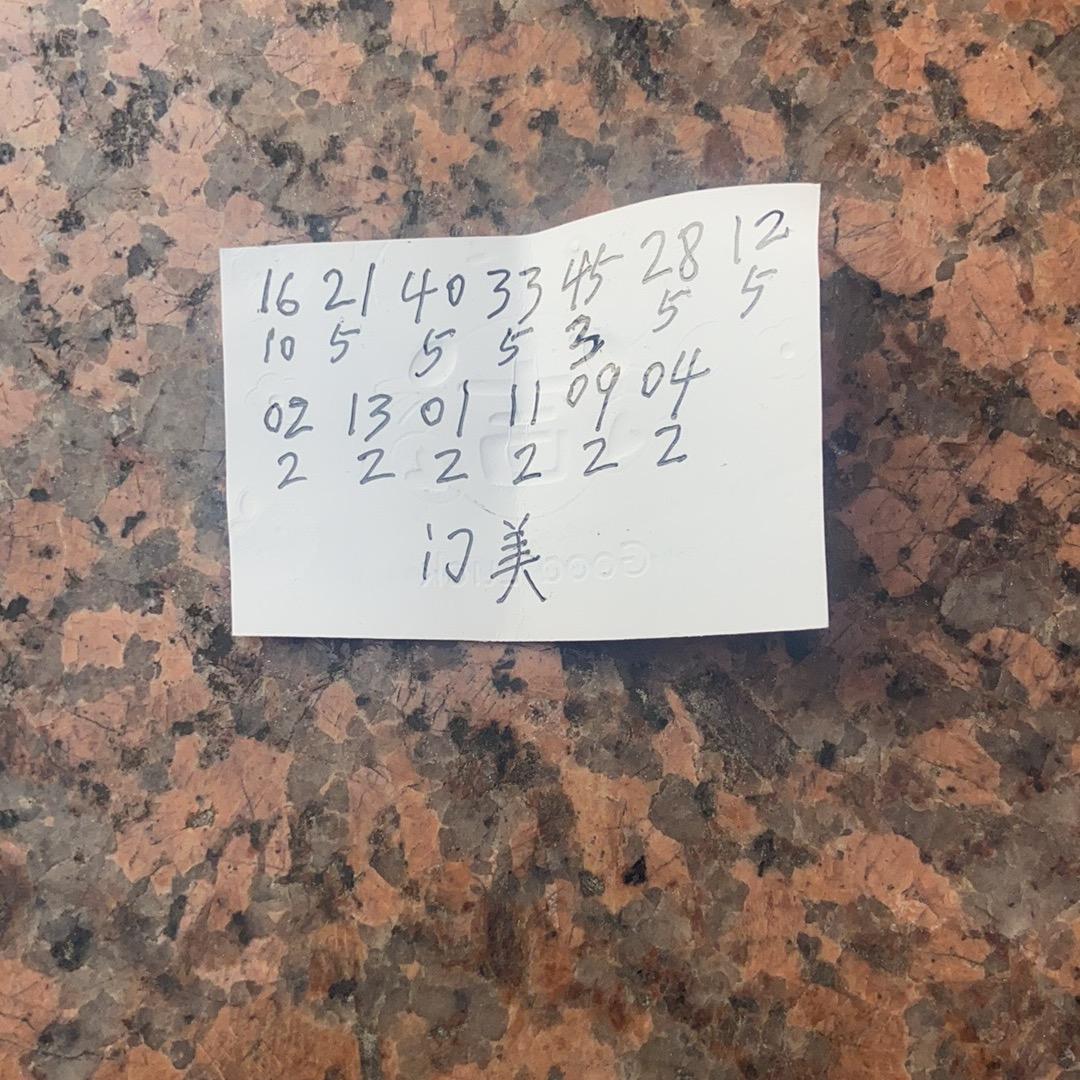 16 21 40 33 45 28 12
10 5 5 5 3 5 5
02 13 01 11 09 04
2 2 2 2 2 2
门美